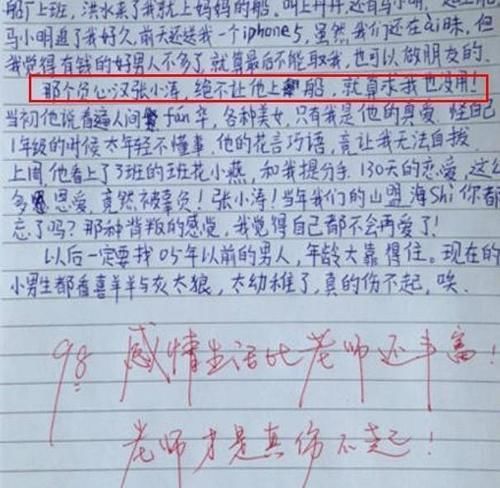 船厂上班，洪水来了我就上妈妈的船。叫上丹丹，还有马小明，
马小明追了我好久，前天还送我一个iphone5，虽然我们还在ai昧，但
我觉得有钱的好男人不多了，就算最后不能取我，也可以做朋友的。
那个负心汉张小涛，绝不让他上船，就算求我也没用！
当初他说看遍人间繁fán华，各种美女，只有我是他的真爱，怪自己
1年级的时候太年轻不懂事，他的花言巧语，竟让我无法自拔。
上周，他看上了3班的班花小燕，和我提分手，130天的恋爱，这么
多恩爱，竟然被辜负！张小涛！当年我们的山盟海Shi你都
忘了吗？那种背叛的感觉，我觉得自己都不会再爱了！
以后一定要找05年以前的男人，年龄大靠得住。现在的
小男生都看喜羊羊与灰太狼，太幼稚了，真的伤不起，唉。
98 感情生活比老师还丰富！
老师才是真伤不起！